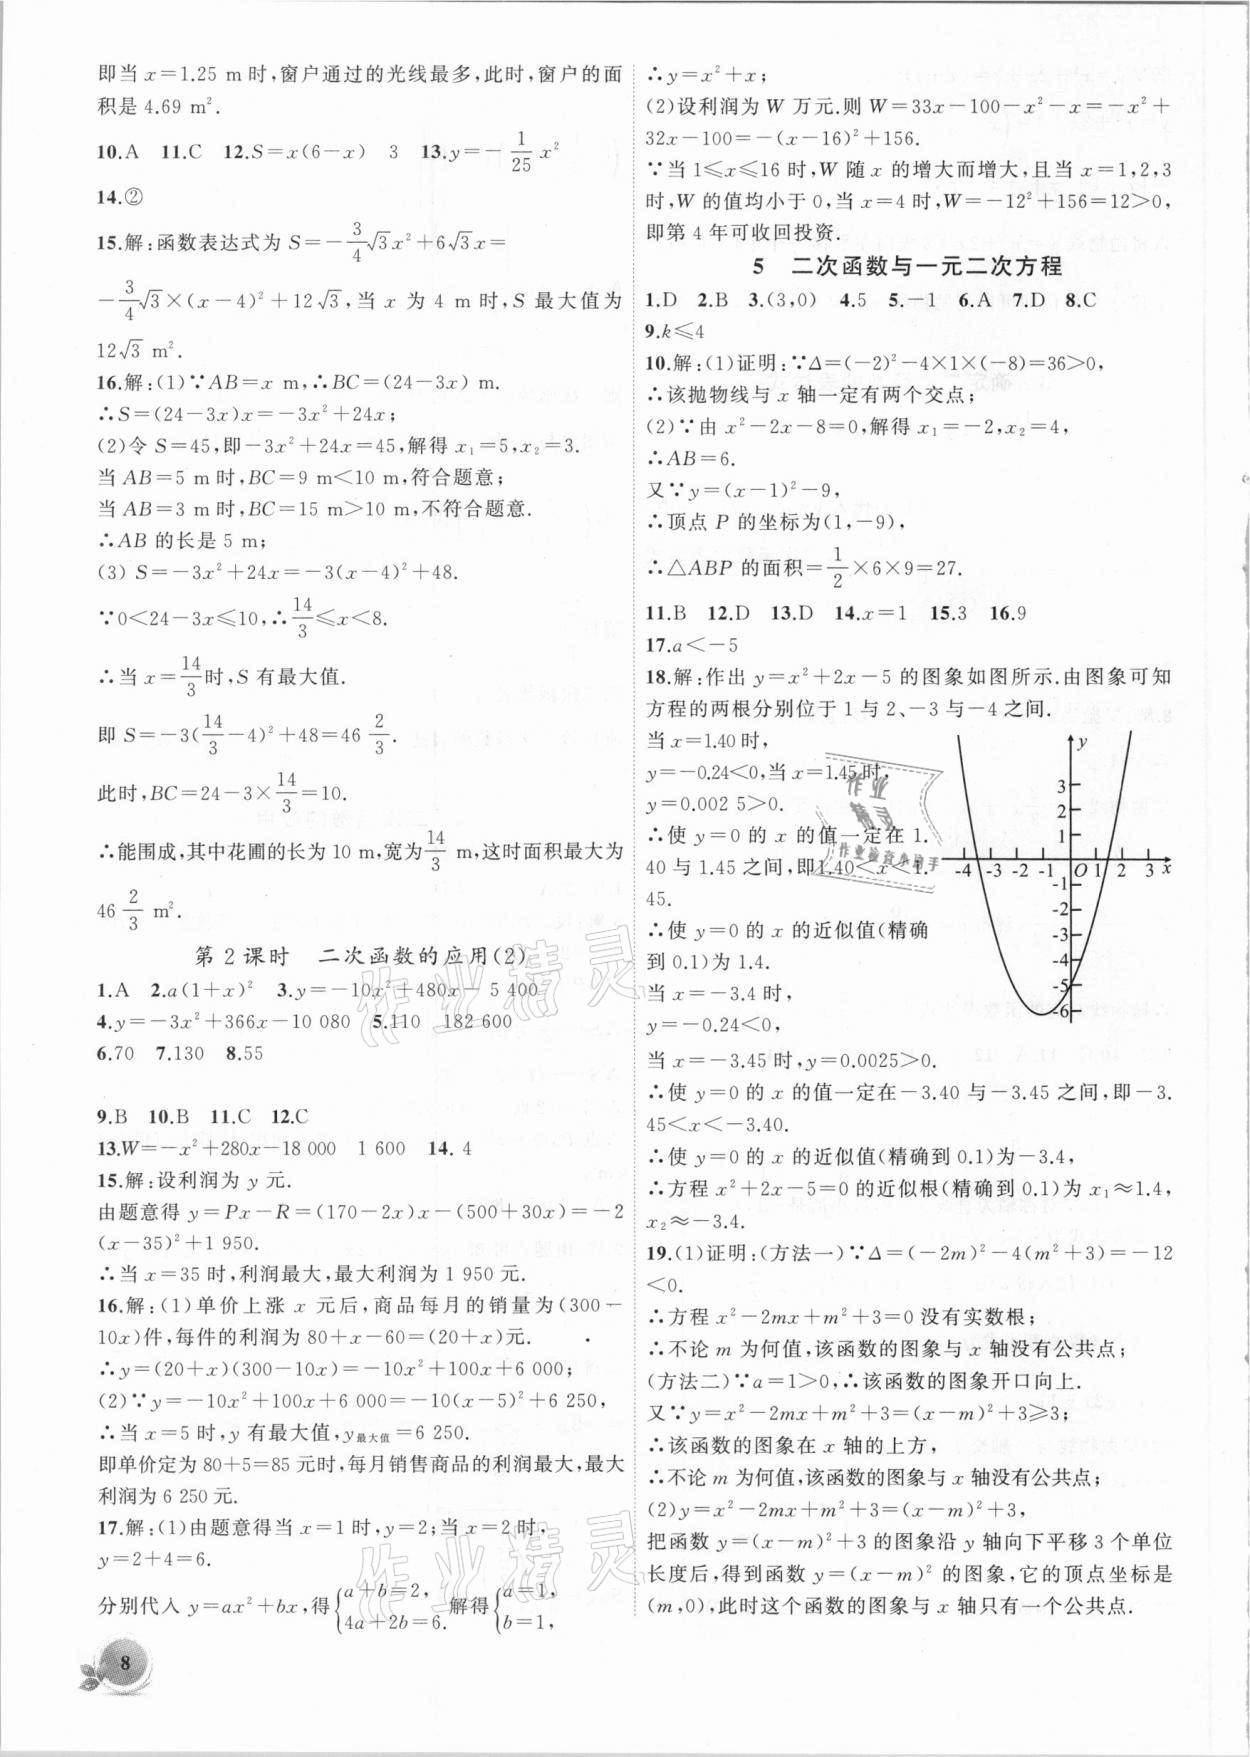 即当 x=1.25 m 时,窗户通过的光线最多,此时,窗户的面
积是 4.69 m².
10.A 11.C 12.S=x(6-x) 3 13.y=-1/25 x²
14.②
15.解:函数表达式为 S=-3/4√3x²+6√3x=
-3/4√3×(x-4)²+12√3,当 x 为 4 m 时,S 最大值为
12√3 m².
16.解:(1)∵AB=x m,∴BC=(24-3x) m.
∴S=(24-3x)x=-3x²+24x;
(2)令 S=45,即-3x²+24x=45,解得 x₁=5,x₂=3.
当 AB=5 m 时,BC=9 m<10 m,符合题意;
当 AB=3 m 时,BC=15 m>10 m,不符合题意.
∴AB 的长是 5 m;
(3) S=-3x²+24x=-3(x-4)²+48.
∵0<24-3x≤10,∴14/3≤x<8.
∴当 x=14/3时,S 有最大值.
即 S=-3(14/3-4)²+48=46 2/3.
此时,BC=24-3×14/3=10.
∴能围成,其中花圃的长为 10 m,宽为14/3 m,这时面积最大为
46 2/3 m².
第 2 课时 二次函数的应用(2)
1.A 2.a(1+x)² 3.y=-10x²+480x-5 400
4.y=-3x²+366x-10 080 5.110 182 600
6.70 7.130 8.55
9.B 10.B 11.C 12.C
13.W=-x²+280x-18 000 1 600 14. 4
15.解:设利润为 y 元.
由题意得 y=Px-R=(170-2x)x-(500+30x)=-2
(x-35)²+1 950.
∴当 x=35 时,利润最大,最大利润为 1 950 元.
16.解:(1)单价上涨 x 元后,商品每月的销量为(300-
10x)件,每件的利润为 80+x-60=(20+x)元.
∴y=(20+x)(300-10x)=-10x²+100x+6 000;
(2)∵y=-10x²+100x+6 000=-10(x-5)²+6 250,
∴当 x=5 时,y 有最大值,y最大值=6 250.
即单价定为 80+5=85 元时,每月销售商品的利润最大,最大
利润为 6 250 元.
17.解:(1)由题意得当 x=1 时,y=2;当 x=2 时,
y=2+4=6.
分别代入 y=ax²+bx,得{a+b=2, 4a+2b=6. 解得{a=1, b=1,
8
∴y=x²+x;
(2)设利润为 W 万元.则 W=33x-100-x²-x=-x²+
32x-100=-(x-16)²+156.
∵当 1≤x≤16 时,W 随 x 的增大而增大,且当 x=1,2,3
时,W 的值均小于 0,当 x=4 时,W=-12²+156=12>0,
即第 4 年可收回投资.
5 二次函数与一元二次方程
1.D 2.B 3.(3,0) 4.5 5.-1 6.A 7.D 8.C
9.k≤4
10.解:(1)证明:∵Δ=(-2)²-4×1×(-8)=36>0,
∴该抛物线与 x 轴一定有两个交点;
(2)∵由 x²-2x-8=0,解得 x₁=-2,x₂=4,
∴AB=6.
又∵y=(x-1)²-9,
∴顶点 P 的坐标为(1,-9),
∴△ABP 的面积=1/2×6×9=27.
11.B 12.D 13.D 14.x=1 15.3 16.9
17.a<-5
18.解:作出 y=x²+2x-5 的图象如图所示.由图象可知
方程的两根分别位于 1 与 2、-3 与-4 之间.
当 x=1.40 时,
y=-0.24<0,当 x=1.45 时,
y=0.002 5>0.
∴使 y=0 的 x 的值一定在 1.
40 与 1.45 之间,即1.40<x<1.
45.
∴使 y=0 的 x 的近似值(精确
到 0.1)为 1.4.
当 x=-3.4 时,
y=-0.24<0,
y
3
2
1
-4 -3 -2 -1 O 1 2 3 x
-1
-2
-3
-4
-5
-6
当 x=-3.45 时,y=0.0025>0.
∴使 y=0 的 x 的值一定在-3.40 与-3.45 之间,即-3.
45<x<-3.40.
∴使 y=0 的 x 的近似值(精确到 0.1)为-3.4,
∴方程 x²+2x-5=0 的近似根(精确到 0.1)为 x₁≈1.4,
x₂≈-3.4.
19.(1)证明:(方法一)∵Δ=(-2m)²-4(m²+3)=-12
<0.
∴方程 x²-2mx+m²+3=0 没有实数根;
∴不论 m 为何值,该函数的图象与 x 轴没有公共点;
(方法二)∵a=1>0,∴该函数的图象开口向上.
又∵y=x²-2mx+m²+3=(x-m)²+3≥3;
∴该函数的图象在 x 轴的上方,
∴不论 m 为何值,该函数的图象与 x 轴没有公共点;
(2)y=x²-2mx+m²+3=(x-m)²+3,
把函数 y=(x-m)²+3 的图象沿 y 轴向下平移 3 个单位
长度后,得到函数 y=(x-m)² 的图象,它的顶点坐标是
(m,0),此时这个函数的图象与 x 轴只有一个公共点.
作业
精灵
作业检查小助手
作业精灵
作业精灵